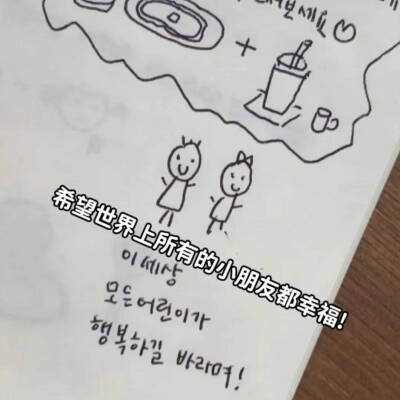 려보세요
희望世界上所有的小朋友都幸福!
이 세상
모든 어린이가
행복하길 바라며!